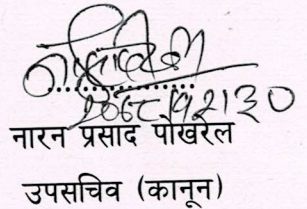 २०६८।१२।३०
नारन प्रसाद पोखरेल
उपसचिव (कानून)